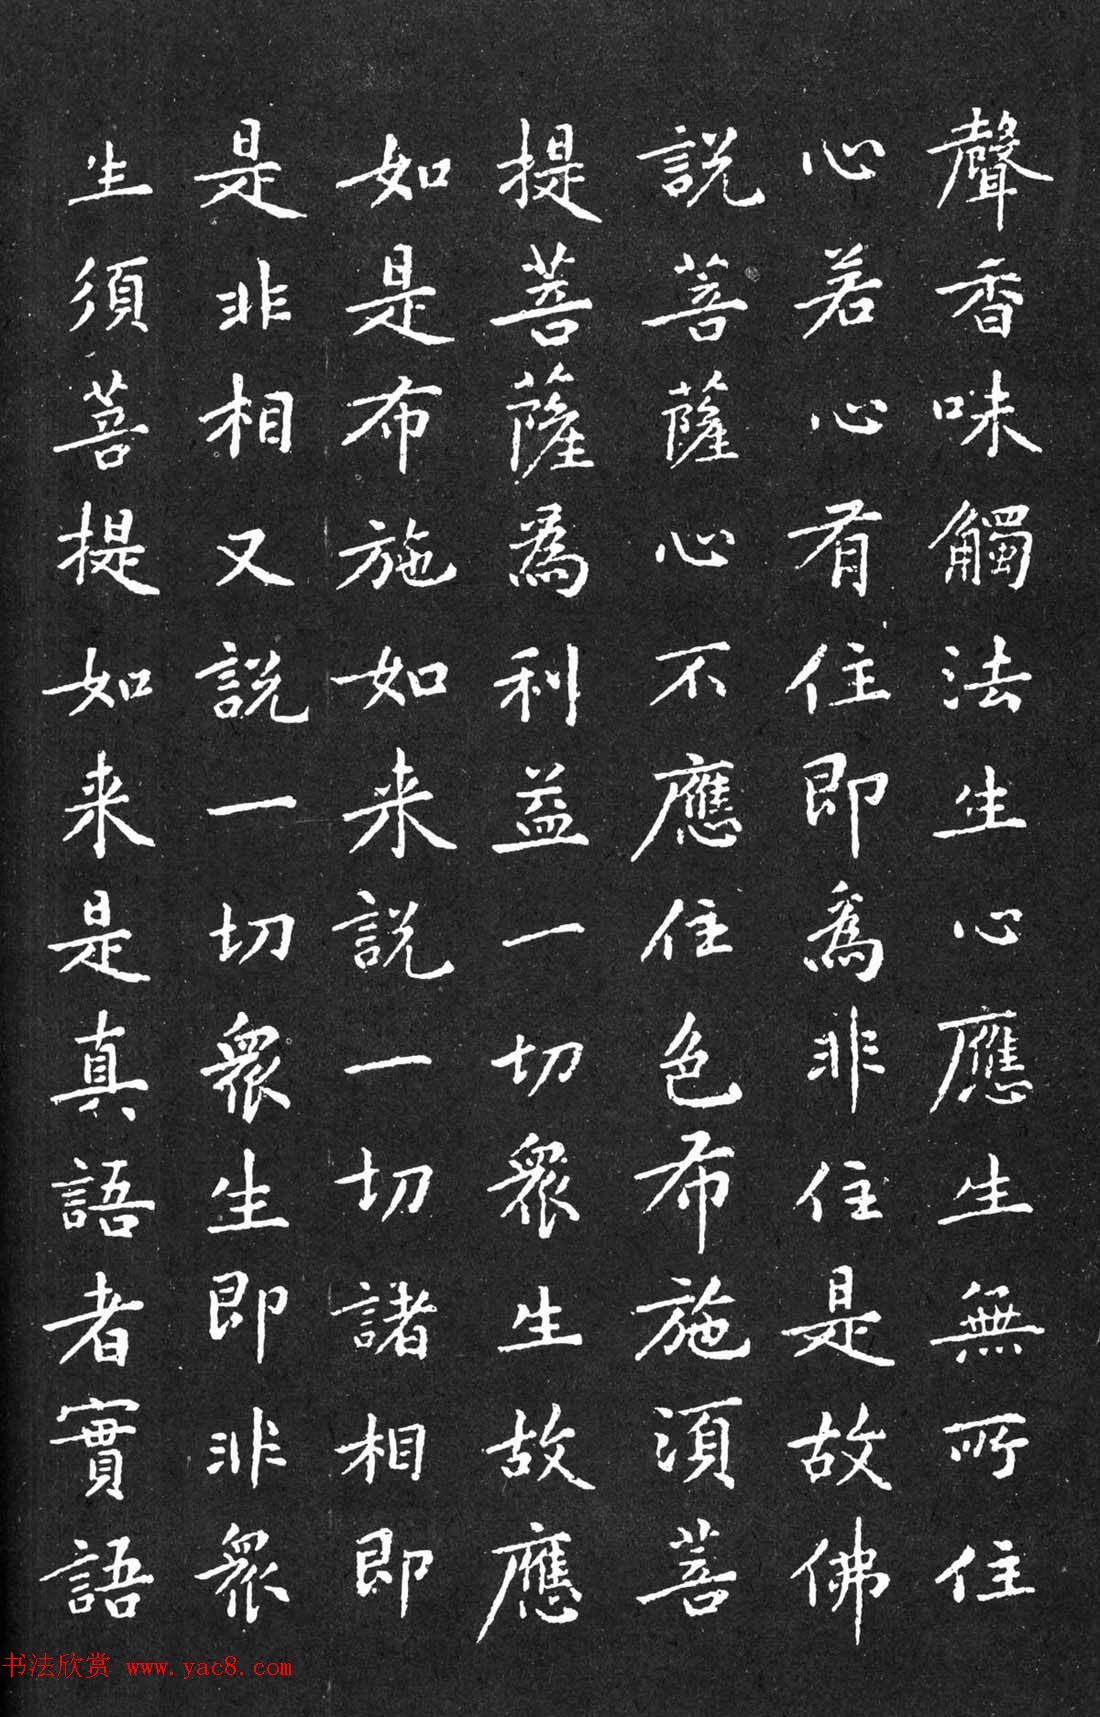 聲香味觸法生心應生無所住
心若心有住即為非住是故佛
說菩薩心不應住色布施須菩
提菩薩為利益一切眾生故應
如是布施如来說一切諸相即
是非相又說一切眾生即非眾
生須菩提如来是真語者實語
书法欣赏 www.yac8.com